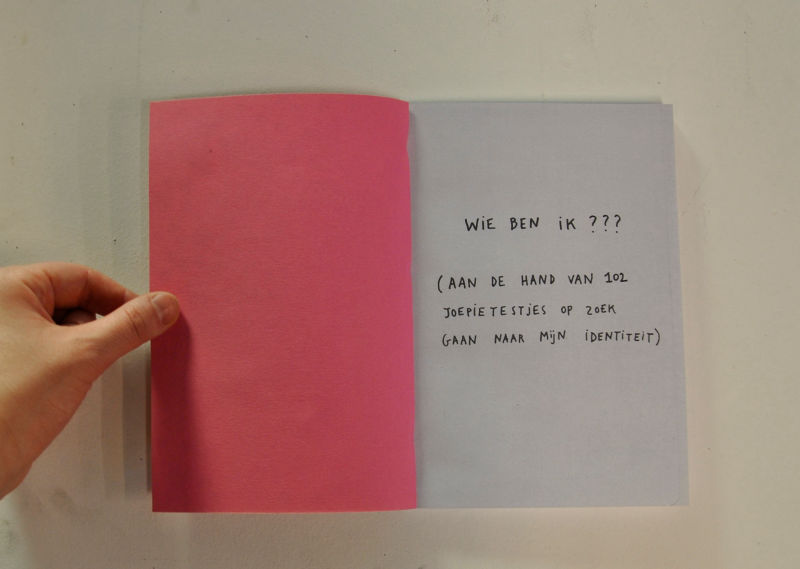 WiE BEN iK ???
(AAN DE HAND VAN 102
JOEPiETESTjES OP ZOEK
GAAN NAAR MijN iDENTiTEiT)